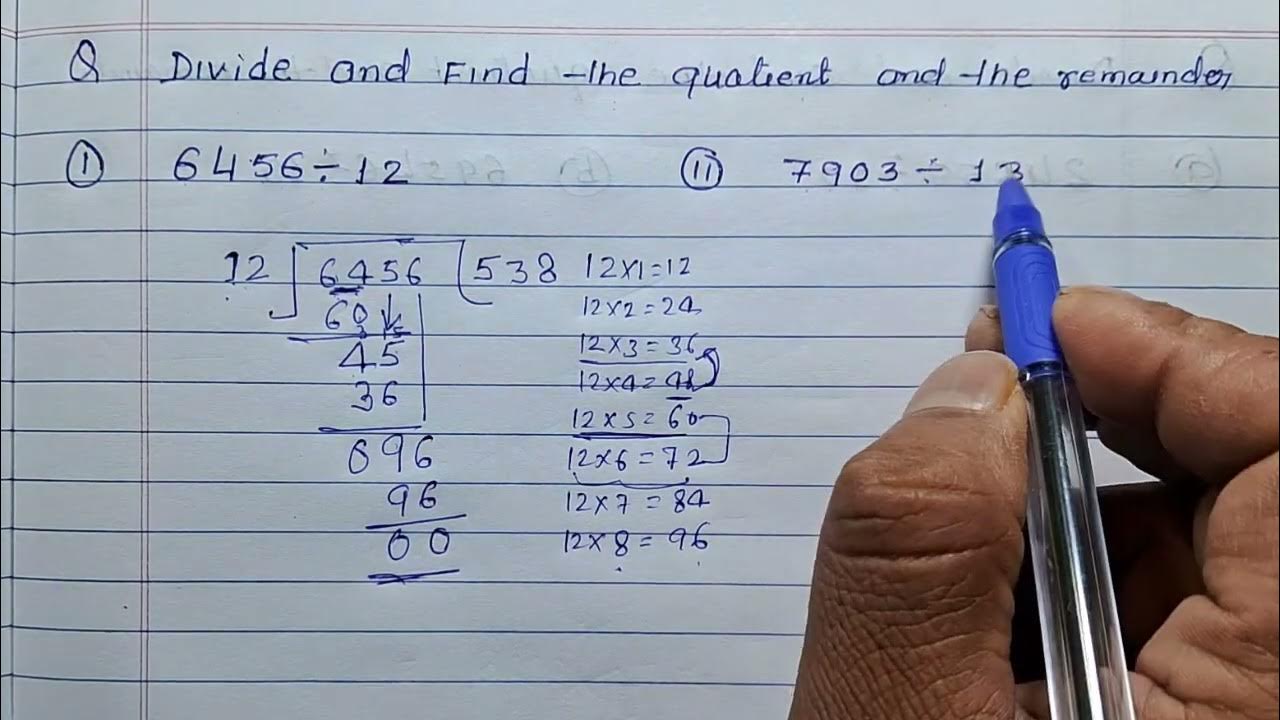 Q Divide and Find the quatient and the remainder
(i) 6456 ÷ 12
(ii) 7903 ÷ 13
12 6456 538
60
45
36
096
96
00
12×1=12
12×2=24
12×3=36
12×4=48
12×5=60
12×6=72
12×7=84
12×8=96